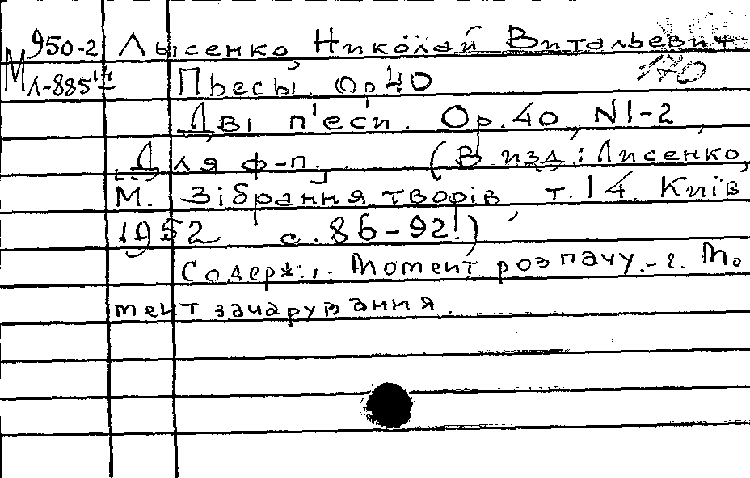 950-2 Лысенко, Николай Витальевич
М Л-885 170
Пьесы. Ор 40
Дві п'єси. Ор. 40, N1-2,
Для ф-п. (В изд: Лисенко,
М. Зібрання творів, т. 14. Київ
1952 с. 86-92!)
Содерж: 1. Момент розпачу.- 2. Мо
мент зачарування.